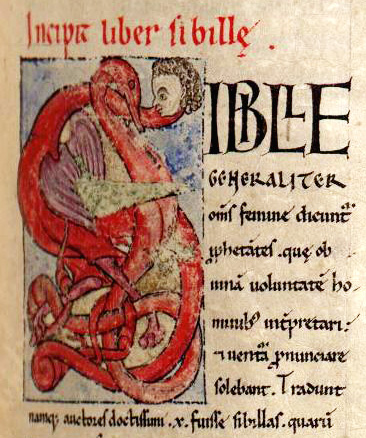 Incipit liber sibillę .
SIBILLE
GENERALITER
om̅s femine dicunt᷑
ꝓphetantes . que ob
uinā uoluntatē ho-
minib; int̅pretari:
⁊ uent̅a ꝓnunciare
solebant. Tradunt
namq; auctores doctissimi .x. fuisse sibillas. quarū